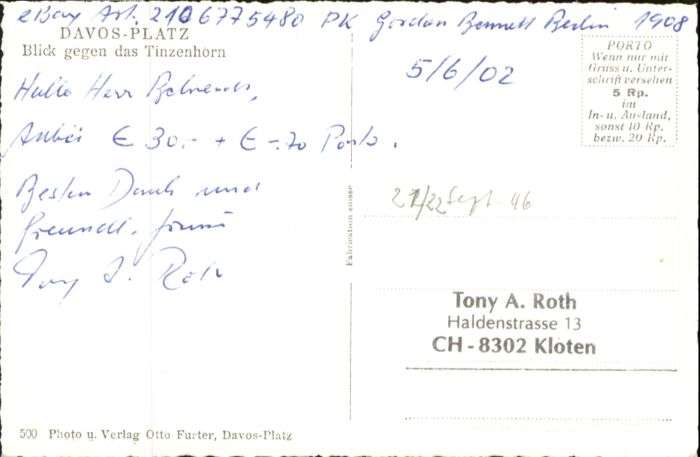 eBay Art. 2106775480 PK Gordon Bennett Berlin 1908
DAVOS-PLATZ
Blick gegen das Tinzenhorn
5/6/02
PORTO
Wenn nur mit
Gruss u. Unter-
schrift versehen
5 Rp.
im
In- u. Ausland,
sonst 10 Rp.
bezw. 20 Rp.
Hallo Herr Behrendt,
Anbei € 30.- + € -.70 Porto.
Besten Dank und
freundl. Grüsse
Tony A. Roth
21/22 Sept. 46
Fabrication suisse
Tony A. Roth
Haldenstrasse 13
CH-8302 Kloten
500 Photo u. Verlag Otto Furter, Davos-Platz